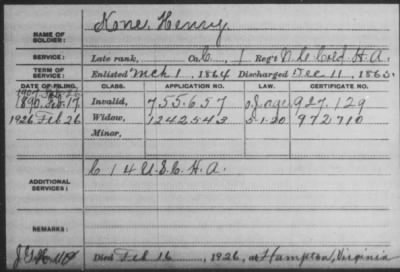 Kone, Henry
NAME OF SOLDIER:
SERVICE: Late rank, Co. C, 1 Reg't N.C. Cold. H.A.
TERM OF SERVICE: Enlisted Mch 1, 1864 Discharged Dec 11, 1865.
DATE OF FILING. CLASS. APPLICATION NO. LAW. CERTIFICATE NO.
1907 Feb
1890 17 Invalid, 755.657 927.129
1926 Feb 26 Widow, 1242543 5-1-20 972710
Minor,
ADDITIONAL SERVICES: C 14 U.S.C.H.A.
REMARKS:
Died Feb 16, 1926, at Hampton, Virginia